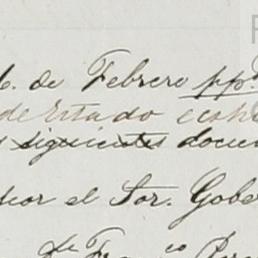 de Febrero ppo.
de Estado
siguientes docu
por el Sor. Gobe
de Franco